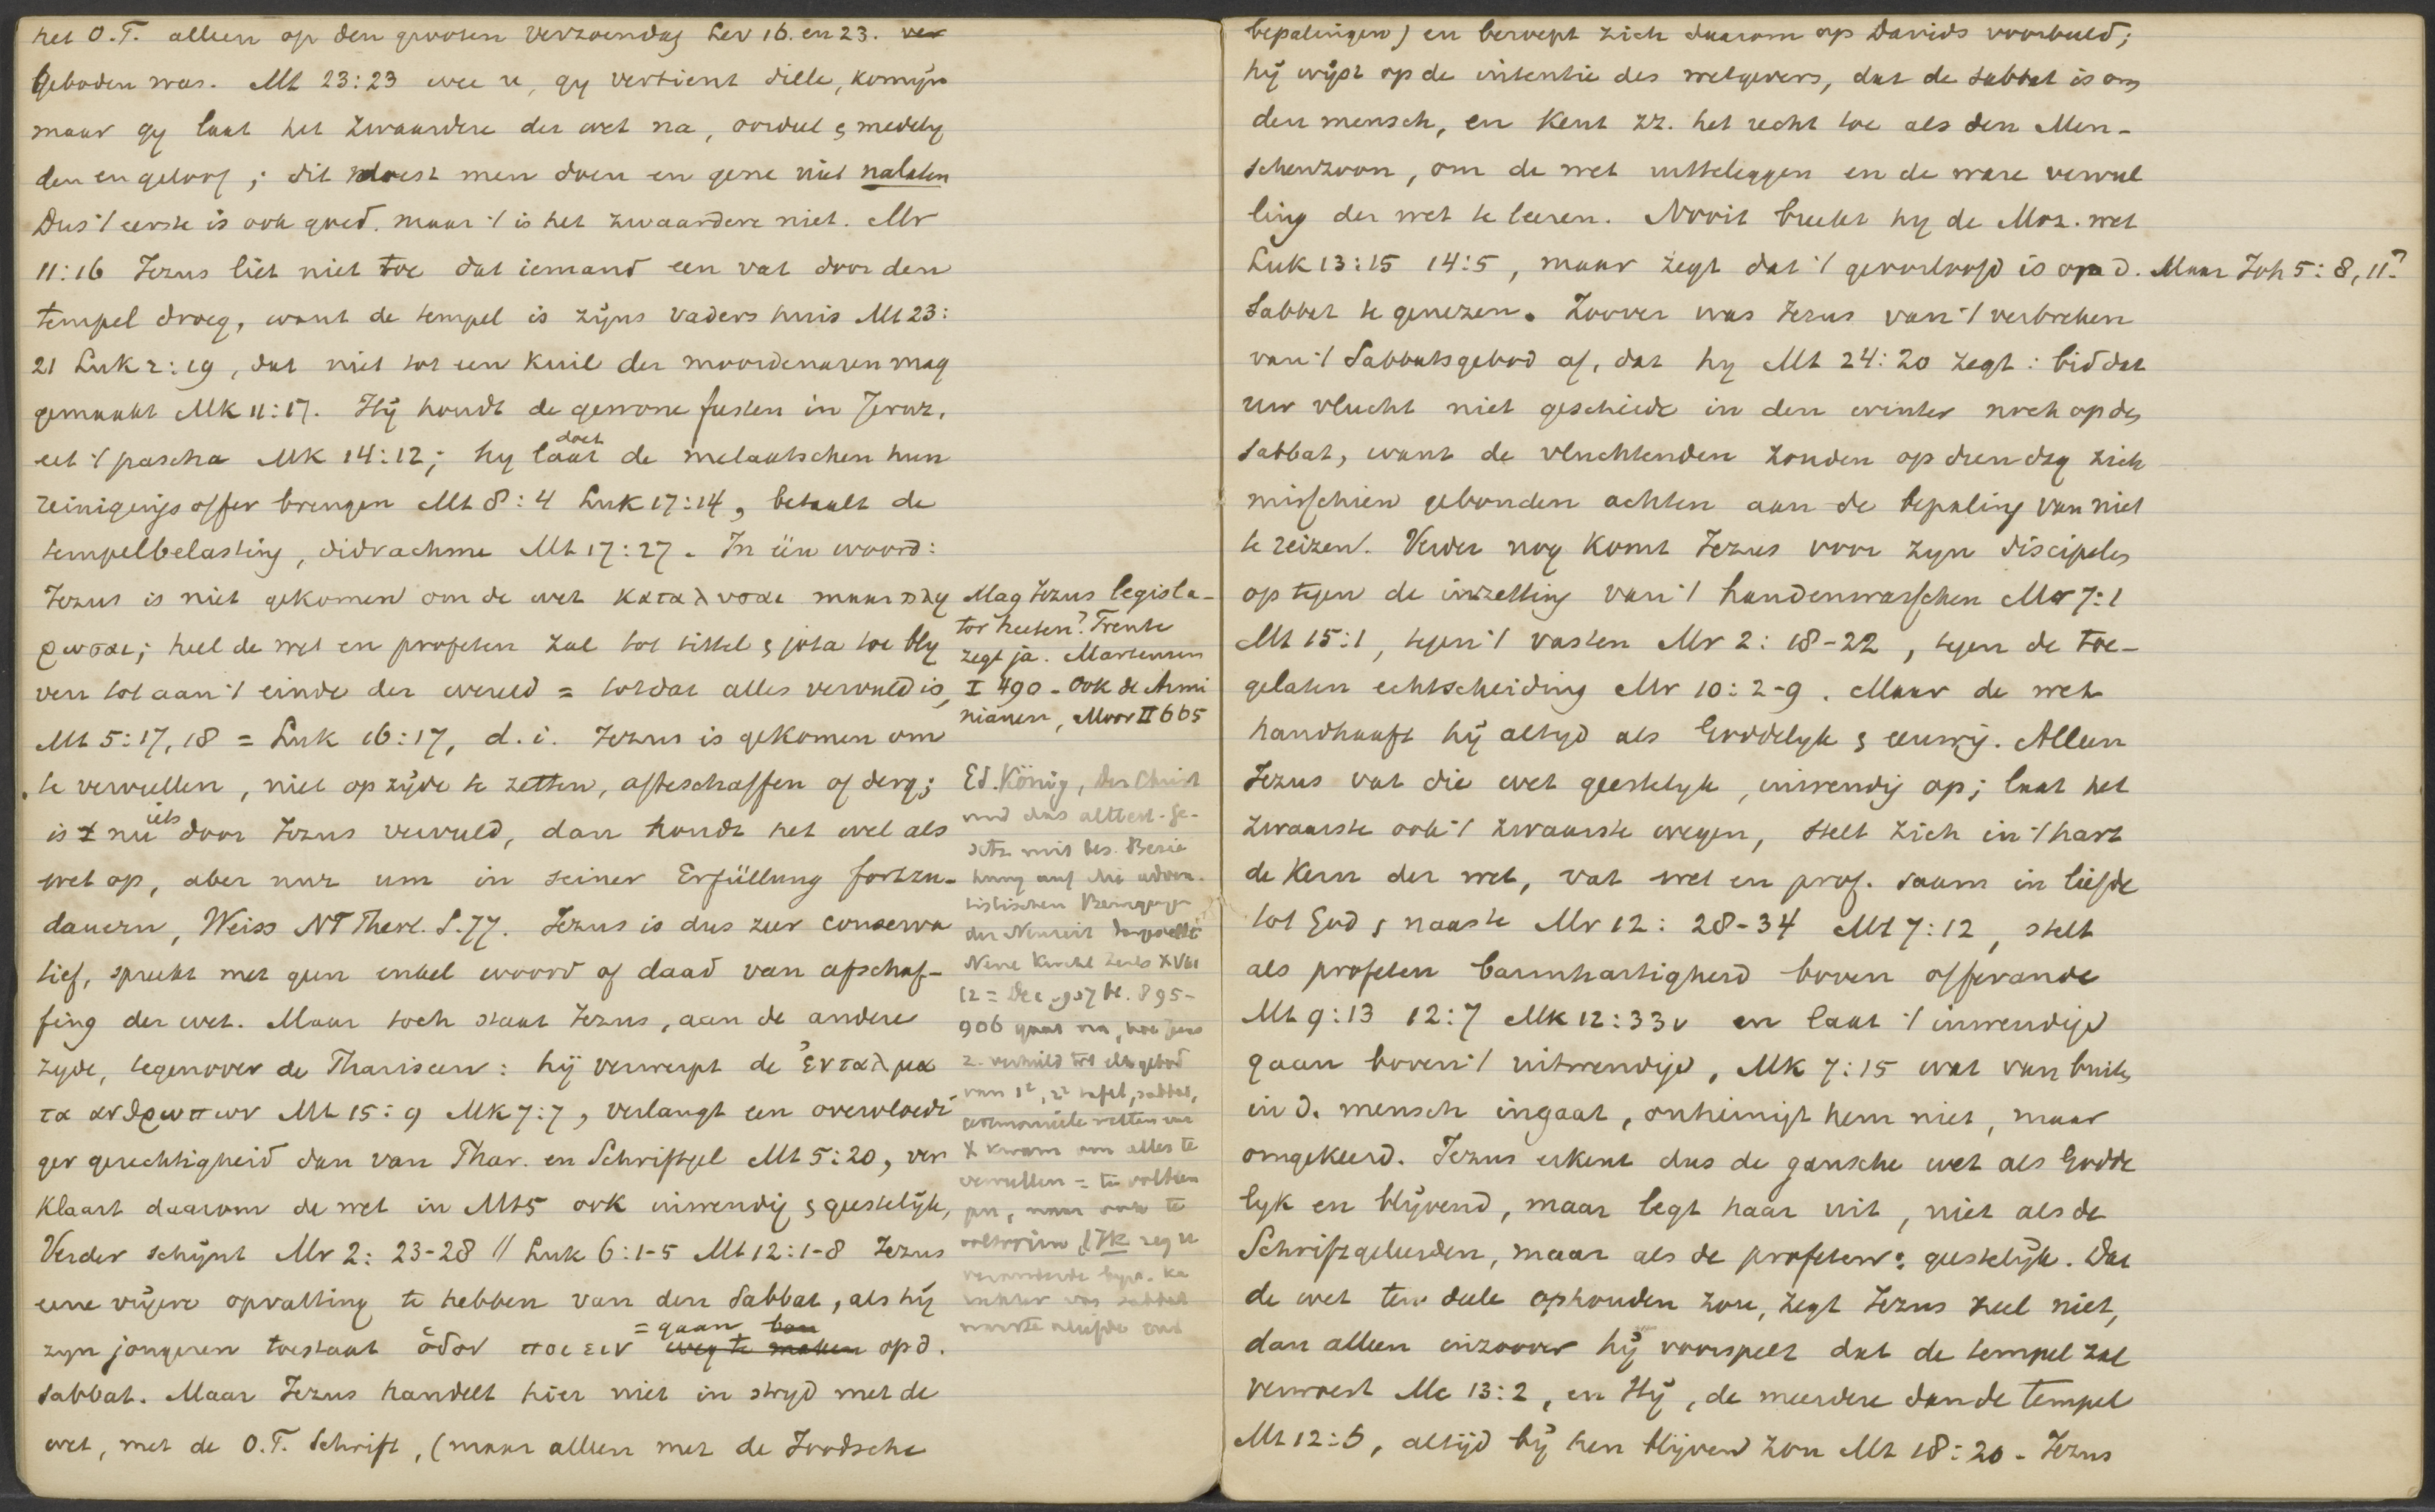 het O.T. alleen op den grooten verzoendag Lev 16. en 23. ver
geboden was. Mt 23:23 wee u, gy vertient dille, komijn
maar gy laat het zwaardere der wet na, oordeel & medely
den en geloof; dit moest men doen en gene niet nalaten
Dus 't eerste is ook goed. maar 't is het zwaardere niet. Mr
11:16 Jezus liet niet toe dat iemand een vat door den
tempel droeg, want de tempel is zijns vaders huis Mt 23:
21 Luk 2:19, dat niet tot een kuil der moordenaren mag
gemaakt Mk 11:17. Hij houdt de gewone feesten in Jeruz,
eet 't pascha Mk 14:12; hy laat doet de melaatschen hun
reinigings offer brengen Mt 8:4 Luk 17:14, betaalt de
tempelbelasting, didrachme Mt 17:27. In één woord:
Jezus is niet gekomen om de wet καταλυσαι maar πλη
ρωσαι; heel de wet en profeten zal tot tittel & jota toe bly
ven tot aan 't einde der wereld = totdat alles vervuld is,
Mt 5:17,18 = Luk 16:17, d.i. Jezus is gekomen om
te vervullen, niet op zijde te zetten, afteschaffen of derg;
is nu iets door Jezus vervuld, dan houdt het wel als
wet op, aber nur um in seiner Erfüllung fortzu-
dauern, Weiss NT Theol. S.77. Jezus is dus zeer conserva
tief, spreekt met geen enkel woord of daad van afschaf-
fing der wet. Maar toch staat Jezus, aan de andere
zyde, tegenover de Phariseen: hij verwerpt de ἐνταλμα
τα ανθρωπων Mt 15:9 Mk 7:7, verlangt een overvloedi
ger gerechtigheid dan van Phar. en Schriftgel Mt 5:20, ver
klaart daarom de wet in Mt 5 ook inwendig & geestelijk,
Verder schijnt Mr 2:23-28 // Luk 6:1-5 Mt 12:1-8 Jezus
eene vrijere opvatting te hebben van den Sabbat, als hij
zyn jongeren toestaat ὁδον ποιειν = gaan weg te maken op d.
sabbat. Maar Jezus handelt hier niet in stryd met de
wet, met de O.T. Schrift, (maar alleen met de Joodsche
Mag Jezus legisla-
tor heeten? Trente
zegt ja. Martensen
I 490 - Ook de Armi
nianen, Moor II 665
Ed. König, Der Christ
und das alttest. Ge-
setz mit bes. Bezie
hung auf die adven-
tistischen Bewegunge
der Neuzeit dargestellt
Neue Kirchl Zeits XVIII
12 = Dec 907 bl. 895-
906 gaat na, hoe Jezus
van 1e, 2e tafel, sabbat,
X kwam om alles te
vervullen =
bepalingen) en beroept zich daarom op Davids voorbeeld;
hij wijst op de intentie des wetgevers, dat de sabbat is om
den mensch, en kent zz. het recht toe als den Men-
schenzoon, om de wet uitteleggen en de ware vervul
ling der wet te leeren. Nooit breekt hy de Moz. wet
Luk 13:15 14:5, maar zegt dat 't geoorloofd is op d. Maar Joh 5:8,11?
Sabbat te genezen. Zoover was Jezus van 't verbreken
van 't Sabbatsgebod af, dat hy Mt 24:20 zegt: bid dat
uw vlucht niet geschiede in den winter noch op de
Sabbat, want de vluchtenden zouden op dien dag zich
misschien gebonden achten aan de bepaling van niet
te reizen. Verder nog komt Jezus voor zyn discipelen
op tegen de inzetting van 't handenwasschen Mr 7:1
Mt 15:1, tegen 't vasten Mr 2:18-22, tegen de toe-
gelaten echtscheiding Mr 10:2-9. Maar de wet
handhaaft hij altyd als Goddelyk & eeuwig. Alleen
Jezus vat die wet geestelyk, inwendig op; laat het
zwaarste ook 't zwaarste wegen, stelt zich in 't hart
de kern der wet, vat wet en prof. saam in liefde
tot God & naaste Mr 12:28-34 Mt 7:12, stelt
als profeten barmhartigheid boven offerande
Mt 9:13 12:7 Mk 12:33v en laat 't inwendige
gaan boven 't uitwendige, Mk 7:15 wat van buiten
in d. mensch ingaat, onreinigt hem niet, maar
omgekeerd. Jezus erkent dus de gansche wet als Godde
lyk en blijvend, maar legt haar uit, niet als de
Schriftgeleerden, maar als de profeten: geestelijk. Dat
de wet ten deele ophouden zou, zegt Jezus heel niet,
dan alleen inzoover hij voorspelt dat de tempel zal
verwoest Mc 13:2, en Hij, de meerdere dan de tempel
Mt 12:6, altijd bij hen blijven zou Mt 18:20. Jezus